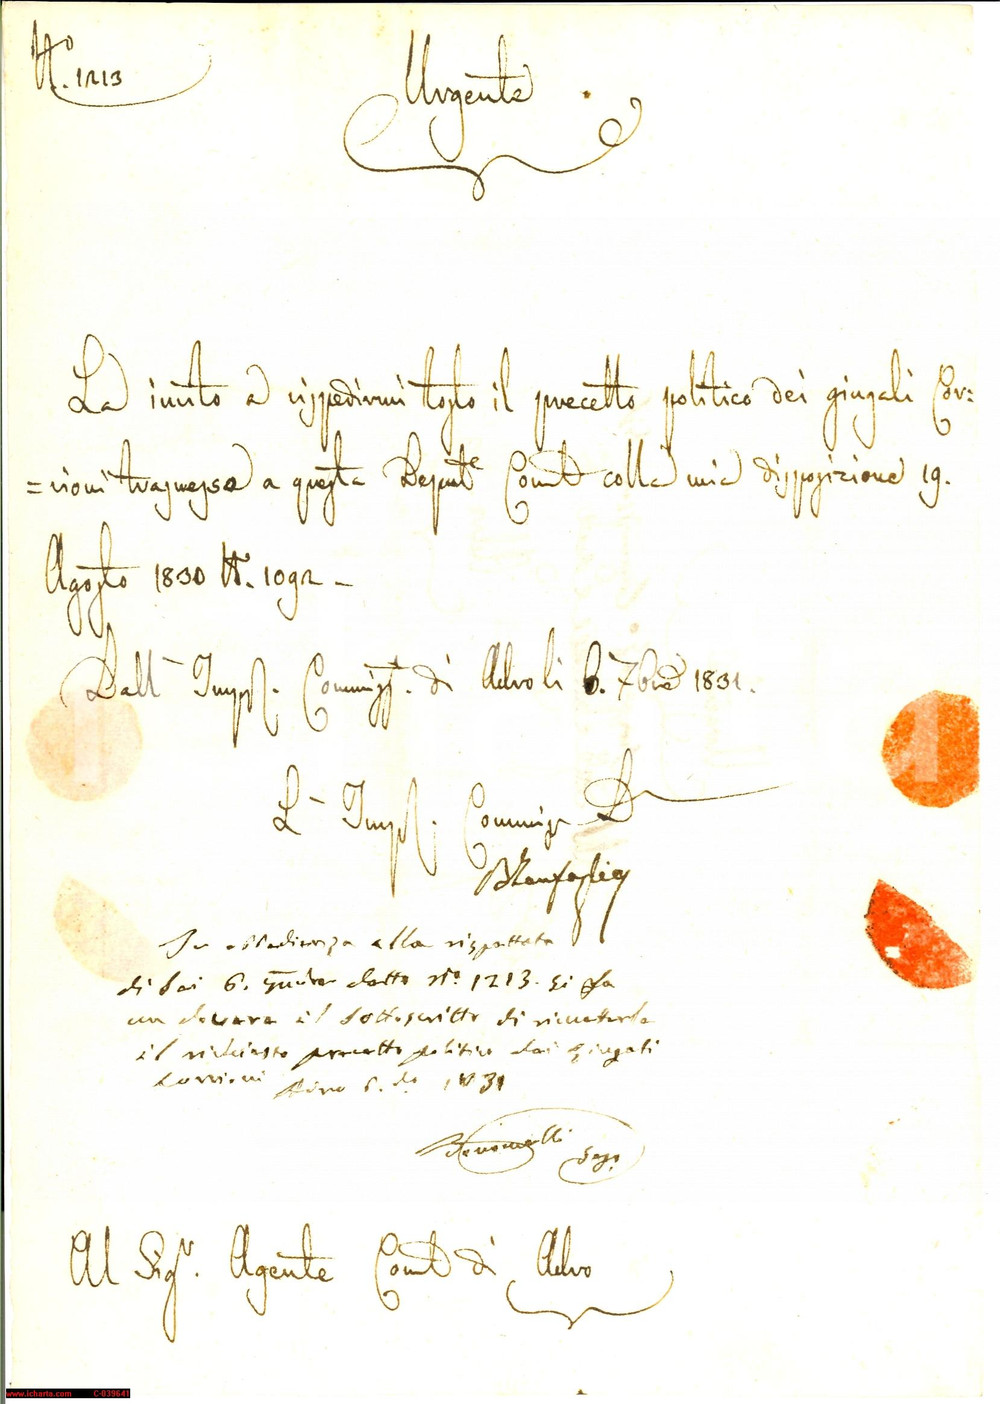 N.° 1213
Urgente
La invito a rispedirmi tosto il precetto politico dei giugali Cor=
=rioni trasmesso a questa Deput.e Com.l colla mia disposizione 19.
Agosto 1830 N.° 1092 -
Dall' Imp. R. Commiss. di Adro li 6. 7bre 1831.
L' Imp. R. Commiss. D
In obbedienza alla rispettata
di Lei 6. Settembre datto N.° 1213. si fa
un dovere il sottoscritto di rimetterle
il richiesto precetto politico dei giugali
Corrioni Adro 6. do 1831
Al Sig.r Agente Com.l di Adro
www.icharta.com C-039641